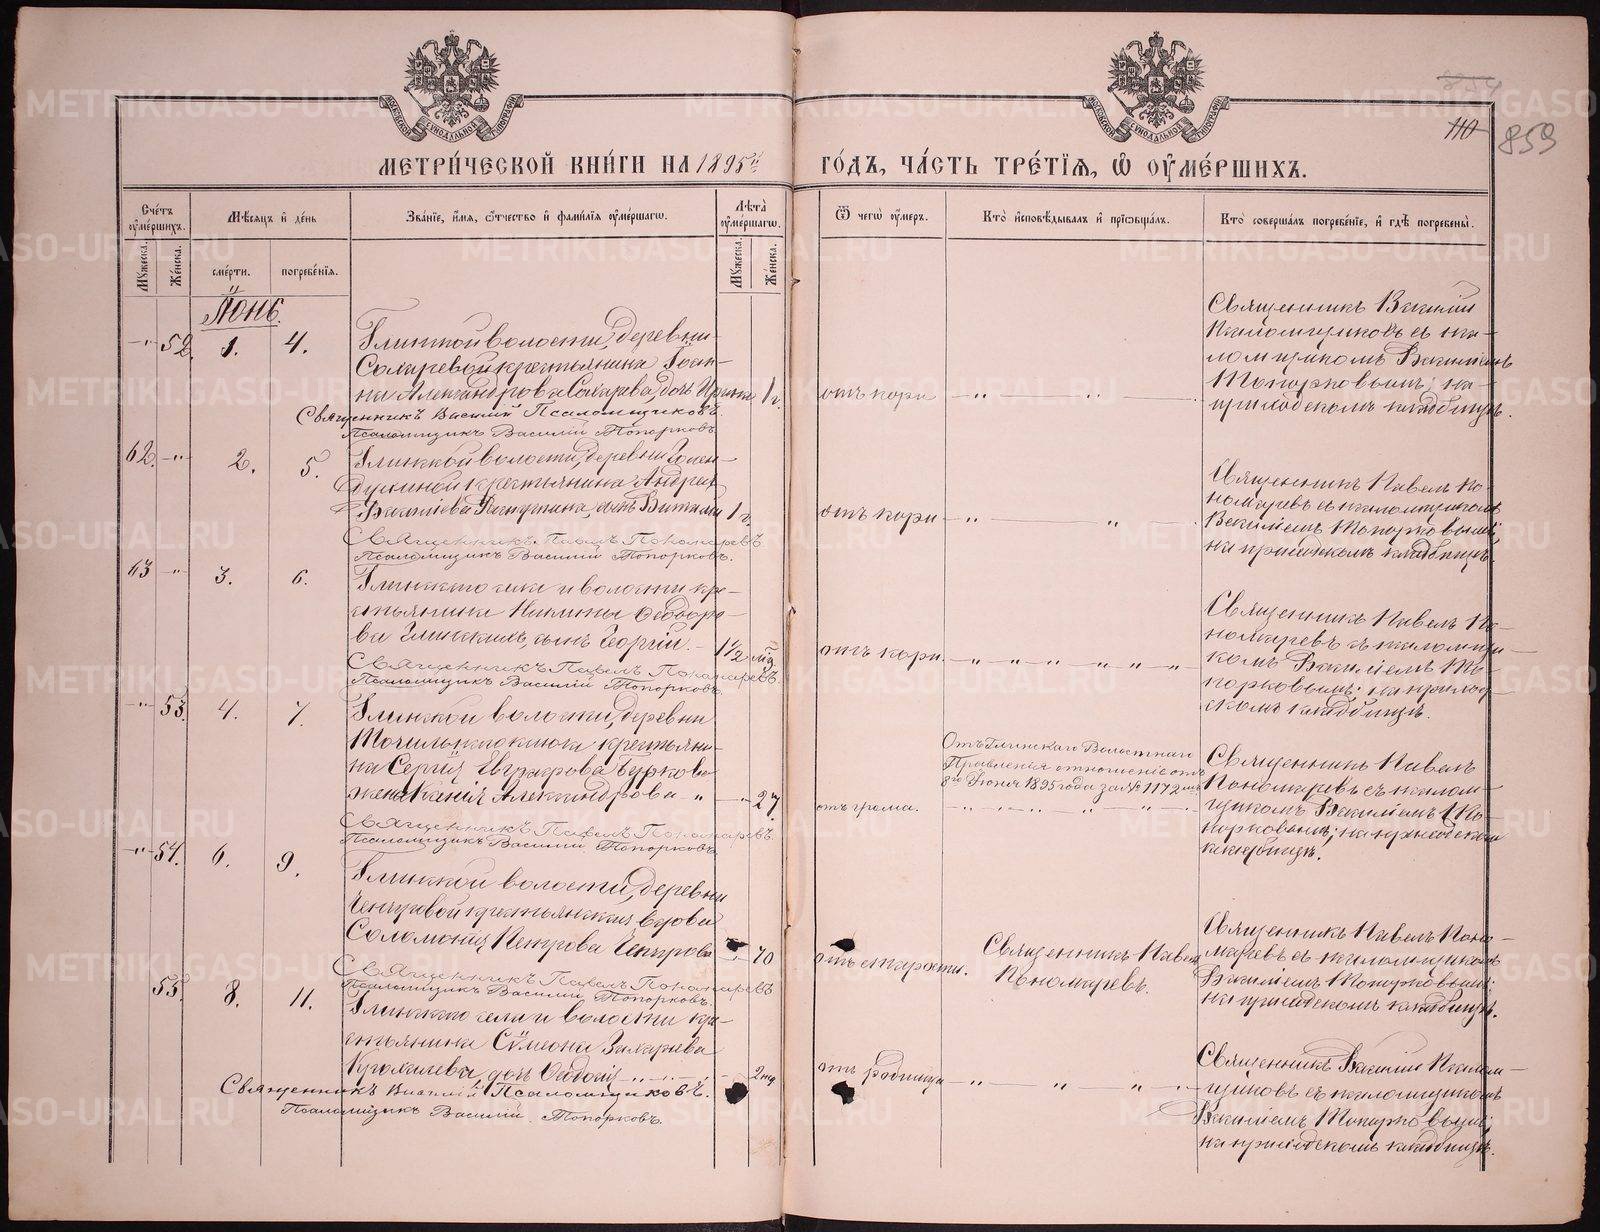 МЕТРИ́ЧЕСКОЙ КНИ́ГИ НА 1895й
ГО́ДЪ, ЧА́СТЬ ТРЕ́ТІЯ, Ѡ ОУМЕ́РШИХЪ.
110
859
Сче́тъ оуме́ршихъ.
Мѣсяцъ и де́нь
Зва́ніе, и́мя, ѻ́тчество и фами́лія оуме́ршагѡ.
Лѣта̀ оуме́ршагѡ.
Ѿ чегѡ̀ оу́меръ.
Кто̀ и́сповѣдывалъ и прїѡбща́лъ.
Кто̀ соверша́лъ погребе́ніе, и гдѣ̀ погребены̀.
Мꙋжеска.
Же́нска.
сме́рти.
погребе́нїя.
Мꙋжеска.
Же́нска.
Іюнь.
-"- 52. 1. 4.
Глинской волости, деревни
Сохаревой крестьянина Іоан-
на Александрова Сохарева, дочь Ирина 1 г.
Священникъ Василій Псаломщиковъ.
Псаломщикъ Василій Топорковъ.
отъ кори
Священникъ Василій
Псаломщиковъ съ пса-
ломщикомъ Василіемъ
Топорковымъ; на
приходскомъ кладбищѣ.
62. -"- 2. 5.
Глинской волости, деревни Голен-
духиной крестьянина Андрея
Василіева сынъ Виталій 1 г.
Священникъ Павелъ Пономаревъ.
Псаломщикъ Василій Топорковъ.
отъ кори
Священникъ Павелъ По-
номаревъ съ псаломщикомъ
Василіемъ Топорковымъ;
на приходскомъ кладбищѣ.
63 -"- 3. 6.
Глинскаго села и волости кре-
стьянина Никиты Ѳедоро-
ва Глинскихъ, сынъ Георгій. 1½
Священникъ Павелъ Пономаревъ.
Псаломщикъ Василій Топорковъ.
отъ кори.
Священникъ Павелъ По-
номаревъ съ псаломщи-
комъ Василіемъ То-
порковымъ; на приход-
скомъ кладбищѣ.
-"- 53. 4. 7.
Глинской волости, деревни
Мочильнаго ключа крестьяни-
на Сергія Евграфова Буркова
жена Ксенія Александрова 27.
Священникъ Павелъ Пономаревъ.
Псаломщикъ Василій Топорковъ.
отъ грома.
Отъ Глинскаго Волостнаго
Правленія отношеніе отъ
8го Іюня 1895 года за № 1172мъ
Священникъ Павелъ
Пономаревъ съ псалом-
щикомъ Василіемъ То-
порковымъ; на приходскомъ
кладбищѣ.
-"- 54. 6. 9.
Глинской волости, деревни
Чепчуговой крестьянская вдова
Соломонія Петрова 70
Священникъ Павелъ Пономаревъ
Псаломщикъ Василій Топорковъ.
отъ старости.
Священникъ Павелъ
Пономаревъ.
Священникъ Павелъ Поно-
маревъ съ псаломщикомъ
Василіемъ Топорковымъ;
на приходскомъ кладбищѣ.
55. 8. 11.
Глинскаго села и волости кре-
стьянина Сѵмеона Захарова
дочь 2 нед
Священникъ Василій Псаломщиковъ.
Псаломщикъ Василій Топорковъ.
отъ родимца
Священникъ Василій Псалом-
щиковъ съ псаломщикомъ
Василіемъ Топорковымъ;
на приходскомъ кладбищѣ.
METRIKI.GASO-URAL.RU